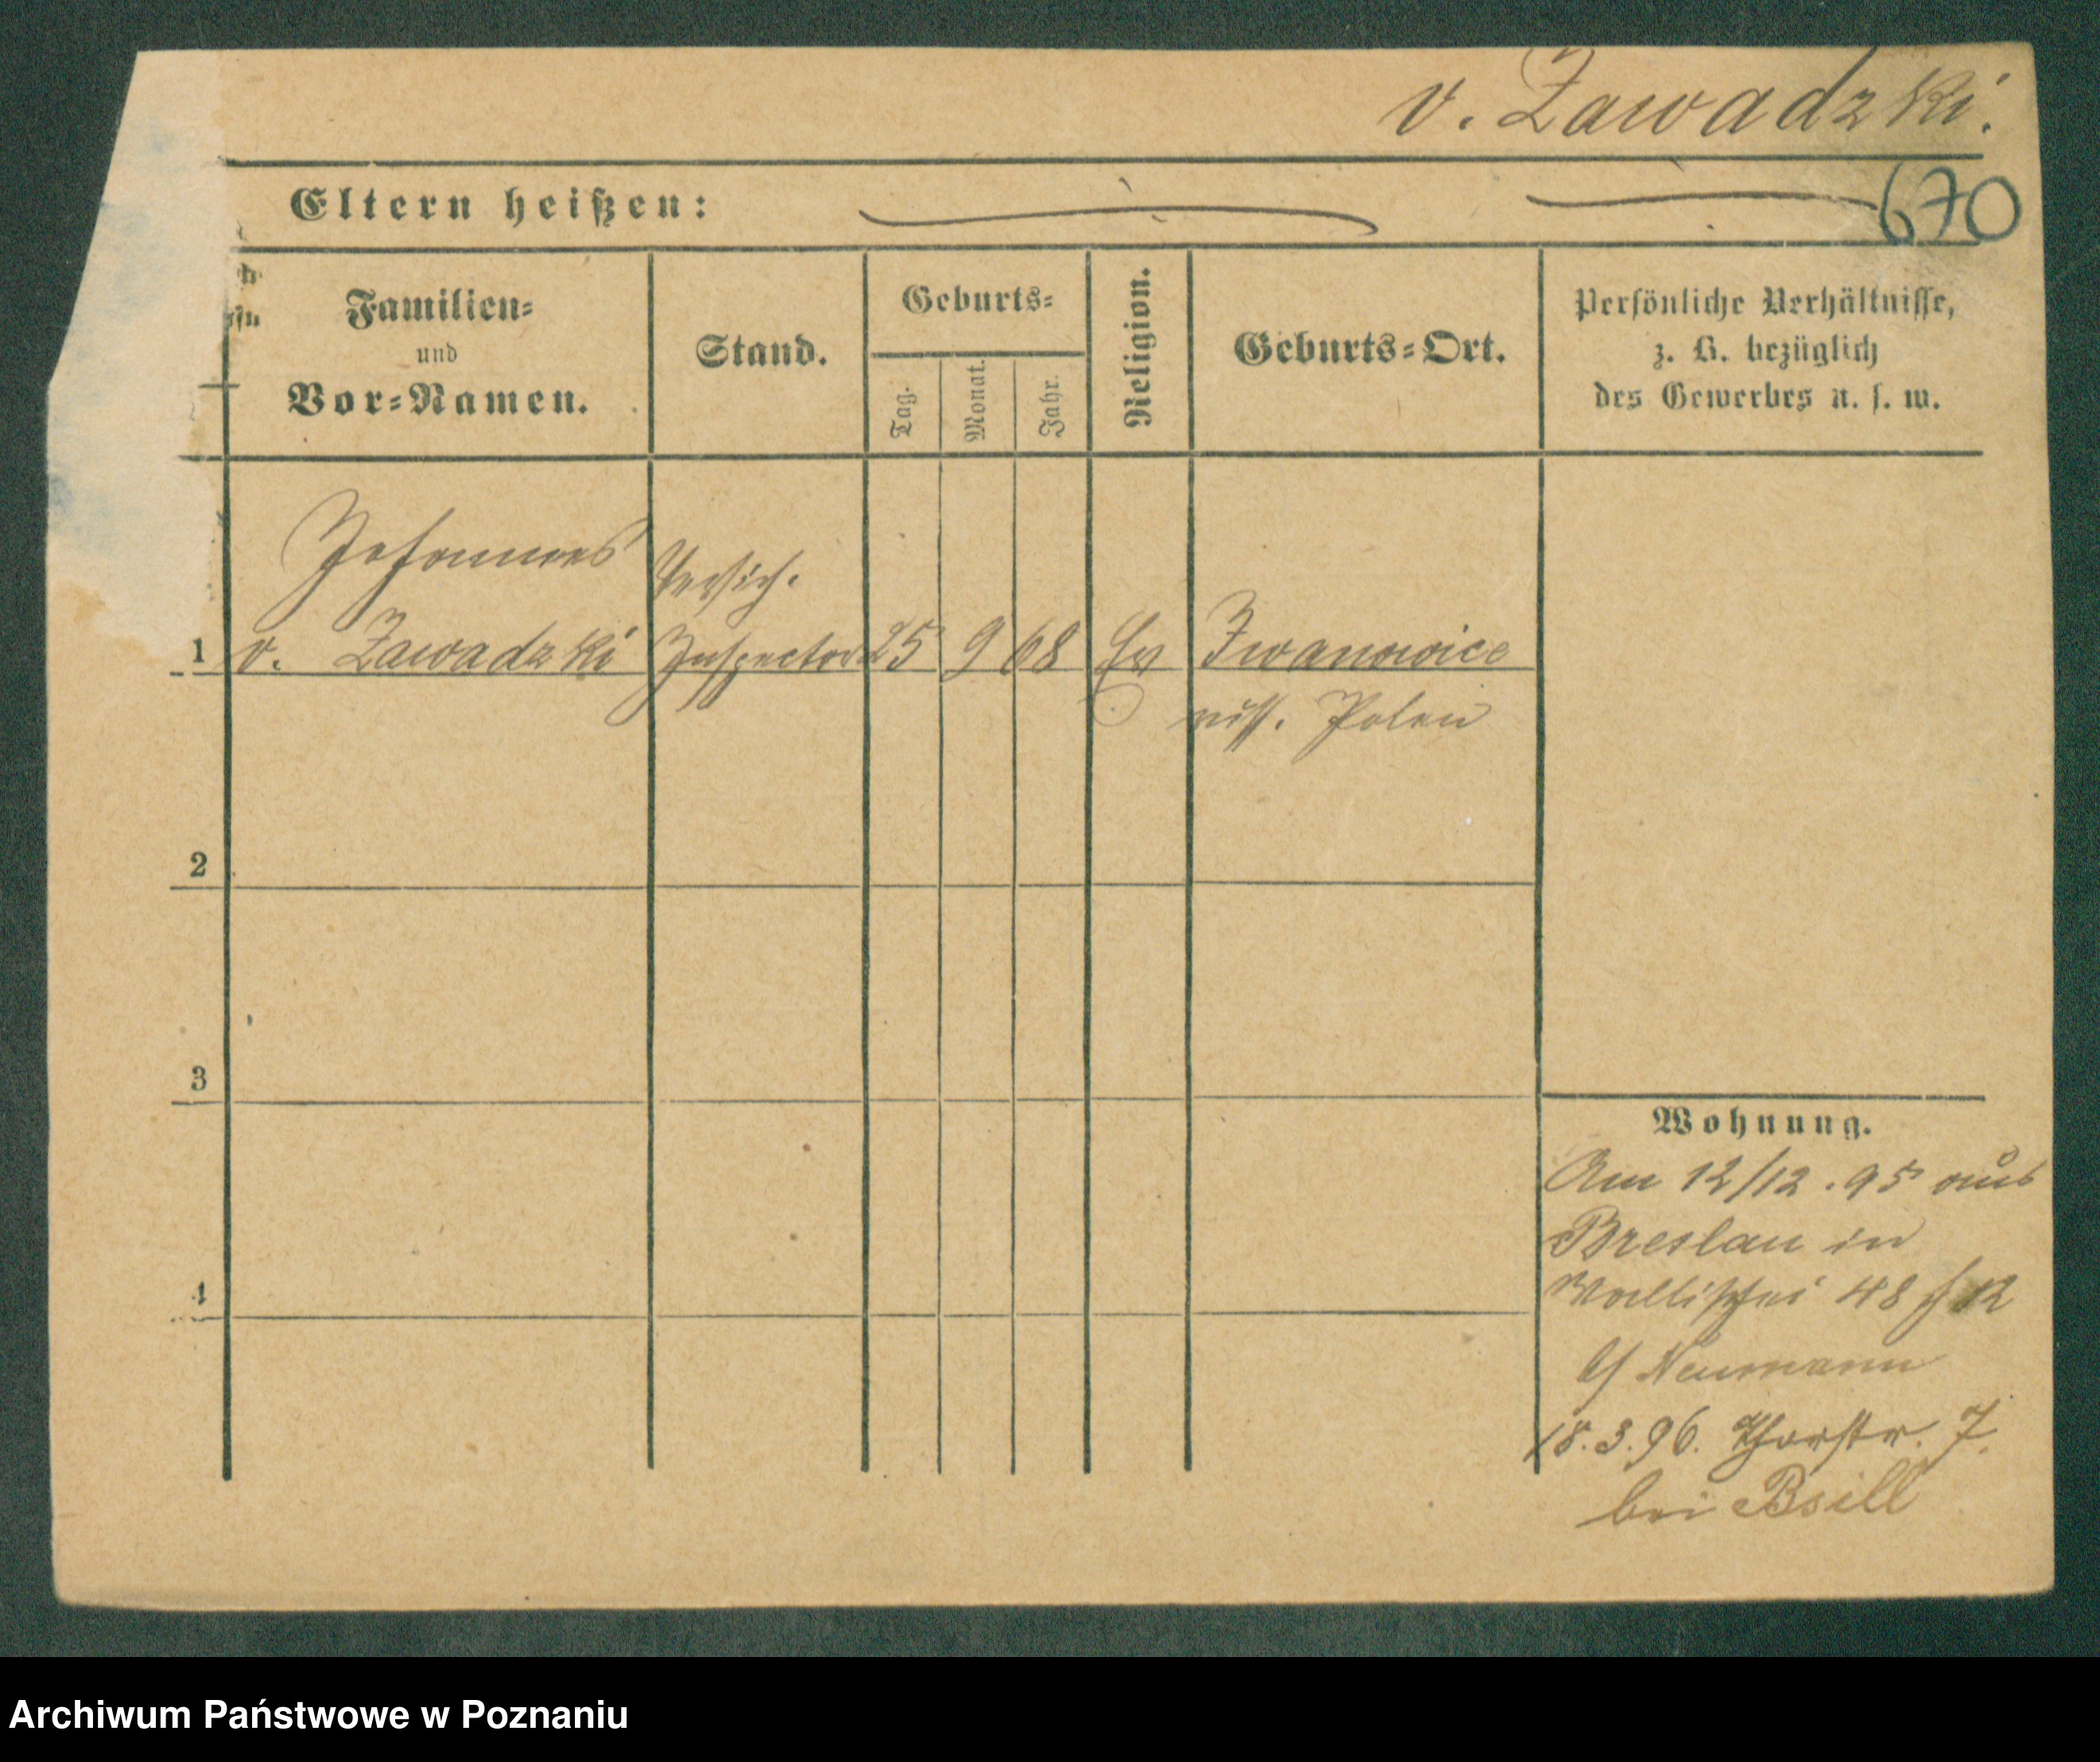 v. Zawadzki.
Eltern heißen:
670
Familien=
und
Vor=Namen.
Stand.
Geburts=
Tag.
Monat.
Jahr.
Religion.
Geburts=Ort.
Persönliche Verhältnisse,
z. B. bezüglich
des Gewerbes u. s. w.
Johannes
Versich.
1 v. Zawadzki Inspector 25 9 68 Ev Iwanowice
russ. Polen
2
3
4
Wohnung.
Am 12/12. 95 aus
Breslau in
Wallischei 48
b/ Neumann
18.3.96. Thorstr. 7.
bei Bsill
Archiwum Państwowe w Poznaniu